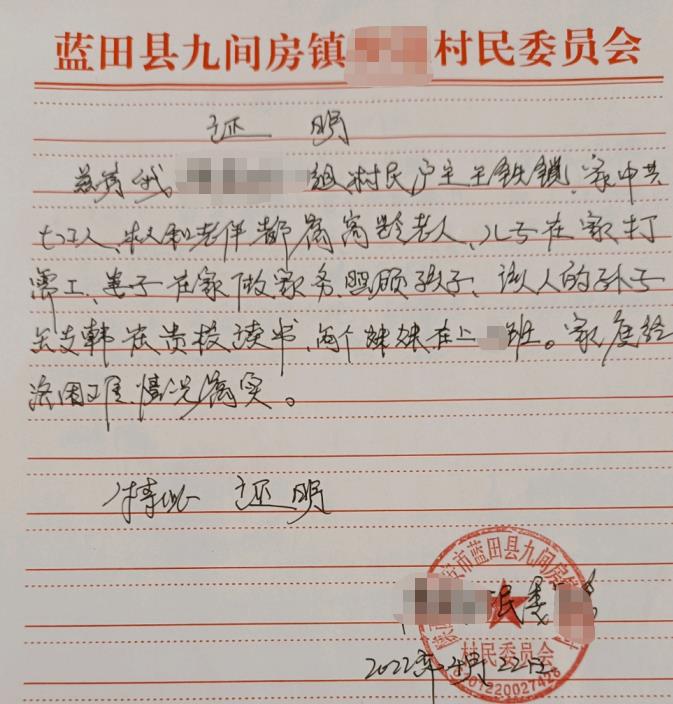 蓝田县九间房镇 村民委员会
证 明
兹有我 组村民户主王铁锁,家中共
七口人,他和老伴都属高龄老人,儿子在家打
零工,妻子在家做家务,照顾孩子,该人的孙子
在贵校读书,两个妹妹在上 班。家庭经
济困难,情况属实。
特此 证明
民委
安市蓝田县九间房镇
村民委员会
2022年4月22日